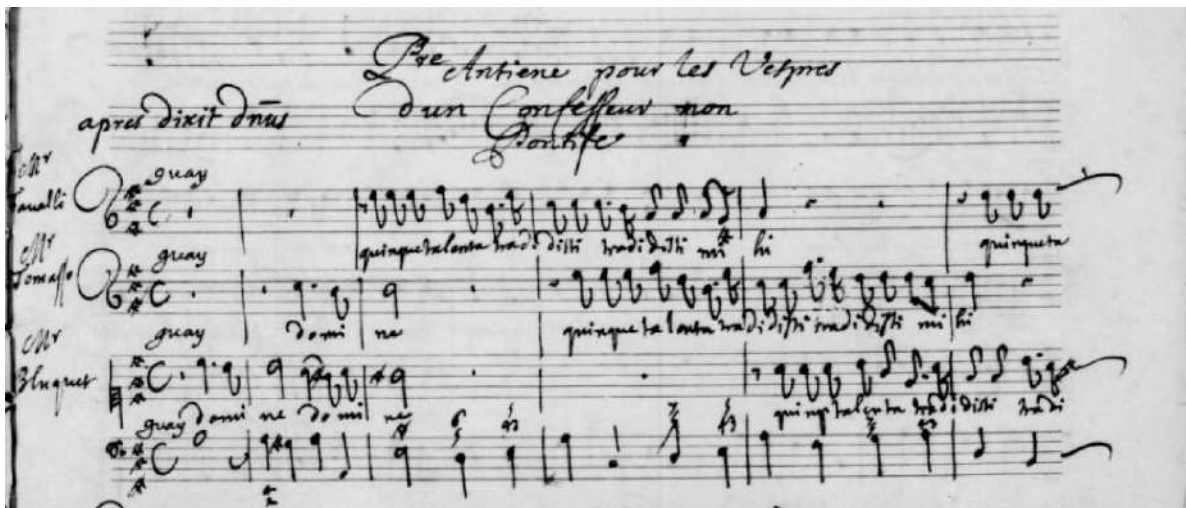 Pre Antiene pour les Vespres
apres dixit dñus d'un Confesseur non
Pontife
Mr
guay
quinque talenta tradi disti tradidisti mi hi quinqueta
Mr
Tomasso
guay
guay domi ne quinque talenta tradidisti tradidisti mi hi
Mr
Bluquet
guay domi ne domi ne quinq talenta tradi disti tradi